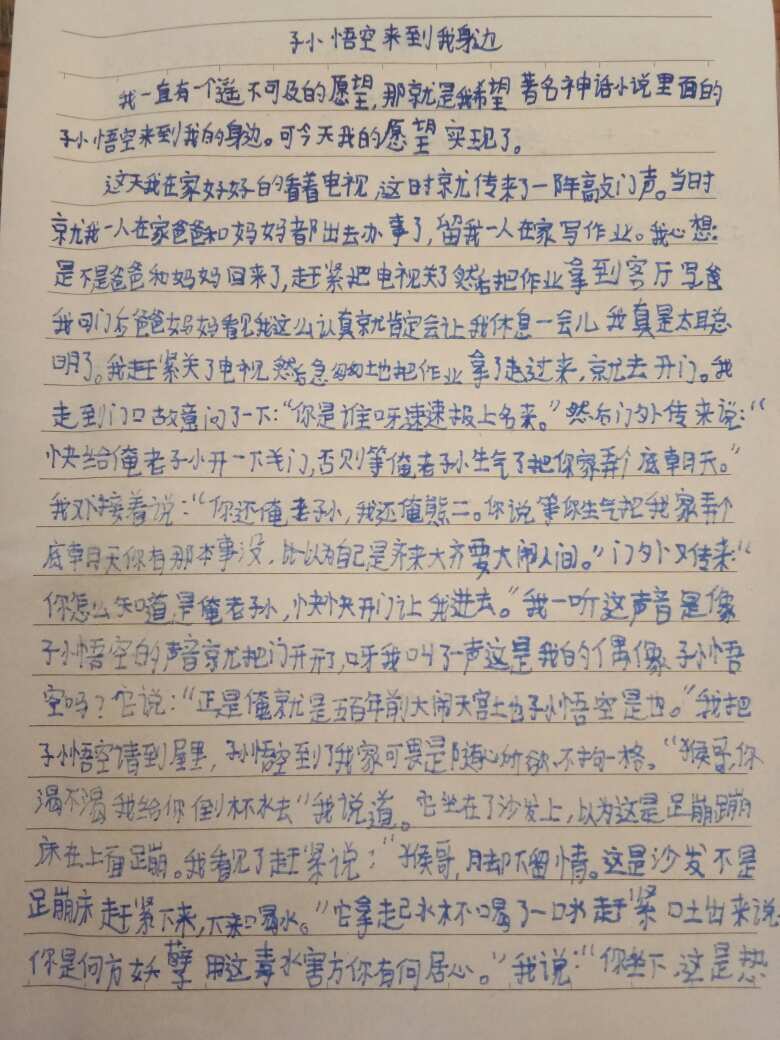 孙悟空来到我身边
我一直有一个遥不可及的愿望,那就是我希望著名神话小说里面的
孙悟空来到我的身边。可今天我的愿望实现了。
这天我在家好好的看着电视,这时就传来了一阵敲门声。当时
就我一人在家爸爸和妈妈都出去办事了,留我一人在家写作业。我心想:
是不是爸爸和妈妈回来了,赶紧把电视关了然后把作业拿到客厅写爸
我可门后爸爸妈妈看见我这么认真就肯定会让我休息一会儿我真是太聪
明了。我赶紧关了电视然后急匆匆地把作业拿了起过来,就去开门。我
走到门口故意问了一下:“你是谁呀速速报上名来。”然后门外传来说:“
快给俺老孙开一下线门,否则等俺老孙生气了把你家弄个底朝天。”
我对接着说:“你还俺老孙,我还俺熊二。你说等你生气把我家弄个
底朝天你有那本事没,比以为自己是齐来大齐要大闹人间。”门外又传来:“
你怎么知道是俺老孙,快快开门让我进去。”我一听这声音是像
孙悟空的声音就把门开开了,呀我叫了一声这是我的偶像孙悟
空吗?它说:“正是俺就是五百年前大闹天宫土也孙悟空是也。”我把
孙悟空请到屋里,孙悟空到了我家可畏是随心所欲、不拘一格。“猴哥,你
渴不渴我给你倒杯水去”我说道。它坐在了沙发上,以为这是足崩蹦
床在上面足崩。我看见了赶紧说:“猴哥,脚下留情。这是沙发不是
足崩床赶紧下来,下来喝水。”它拿起水杯喝了一口水赶紧吐出来说
你是何方妖孽用这毒水害方你有何居心。”我说:“你坐下,这是热